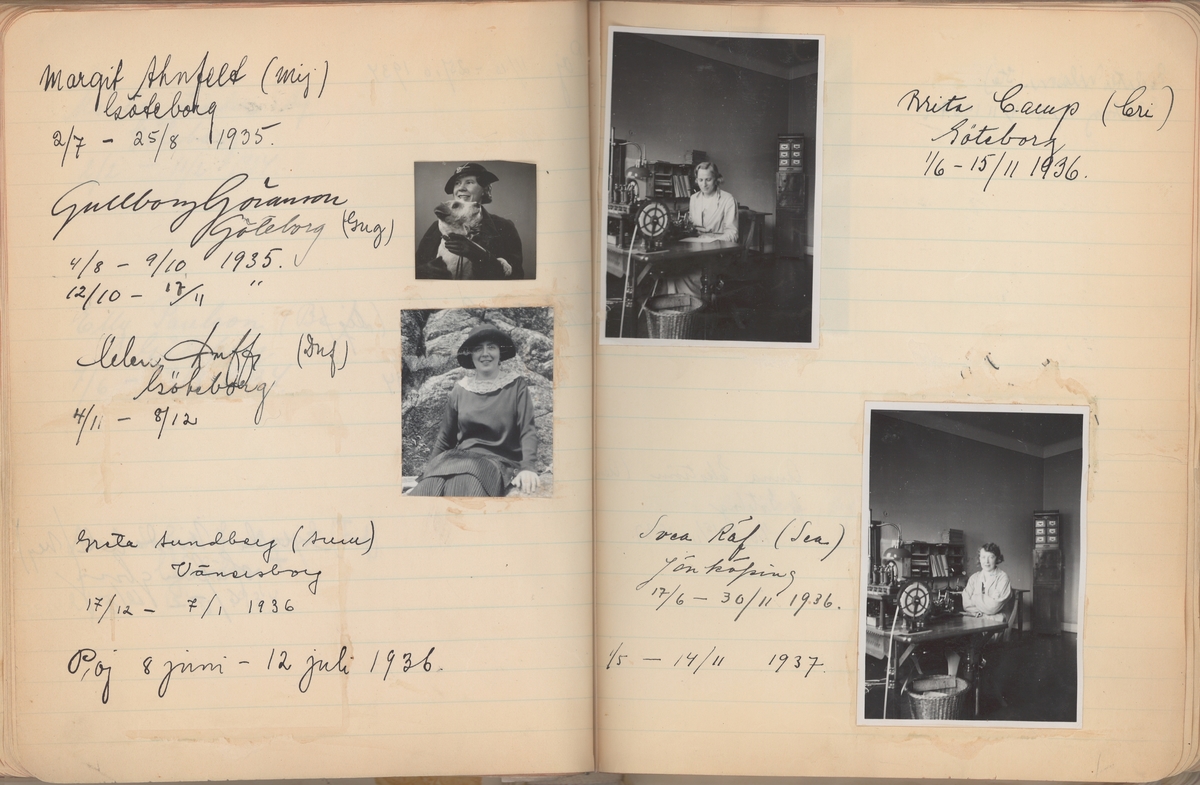 Margit Ahnfelt (Mij)
Göteborg
2/7 - 25/8 1935.
Gullborg Göranson
Göteborg (Gug)
4/8 - 9/10 1935.
12/10 - 17/11 "
Duff (Duf)
Göteborg
4/11 - 8/12
Greta Sundberg (Sun)
Vänersborg
17/12 - 7/1 1936
8 juni - 12 juli 1936.
Brita Camp (Cri)
Göteborg
1/6 - 15/11 1936.
Svea Räf (Sea)
Jönköping
17/6 - 30/11 1936.
1/5 - 14/11 1937.